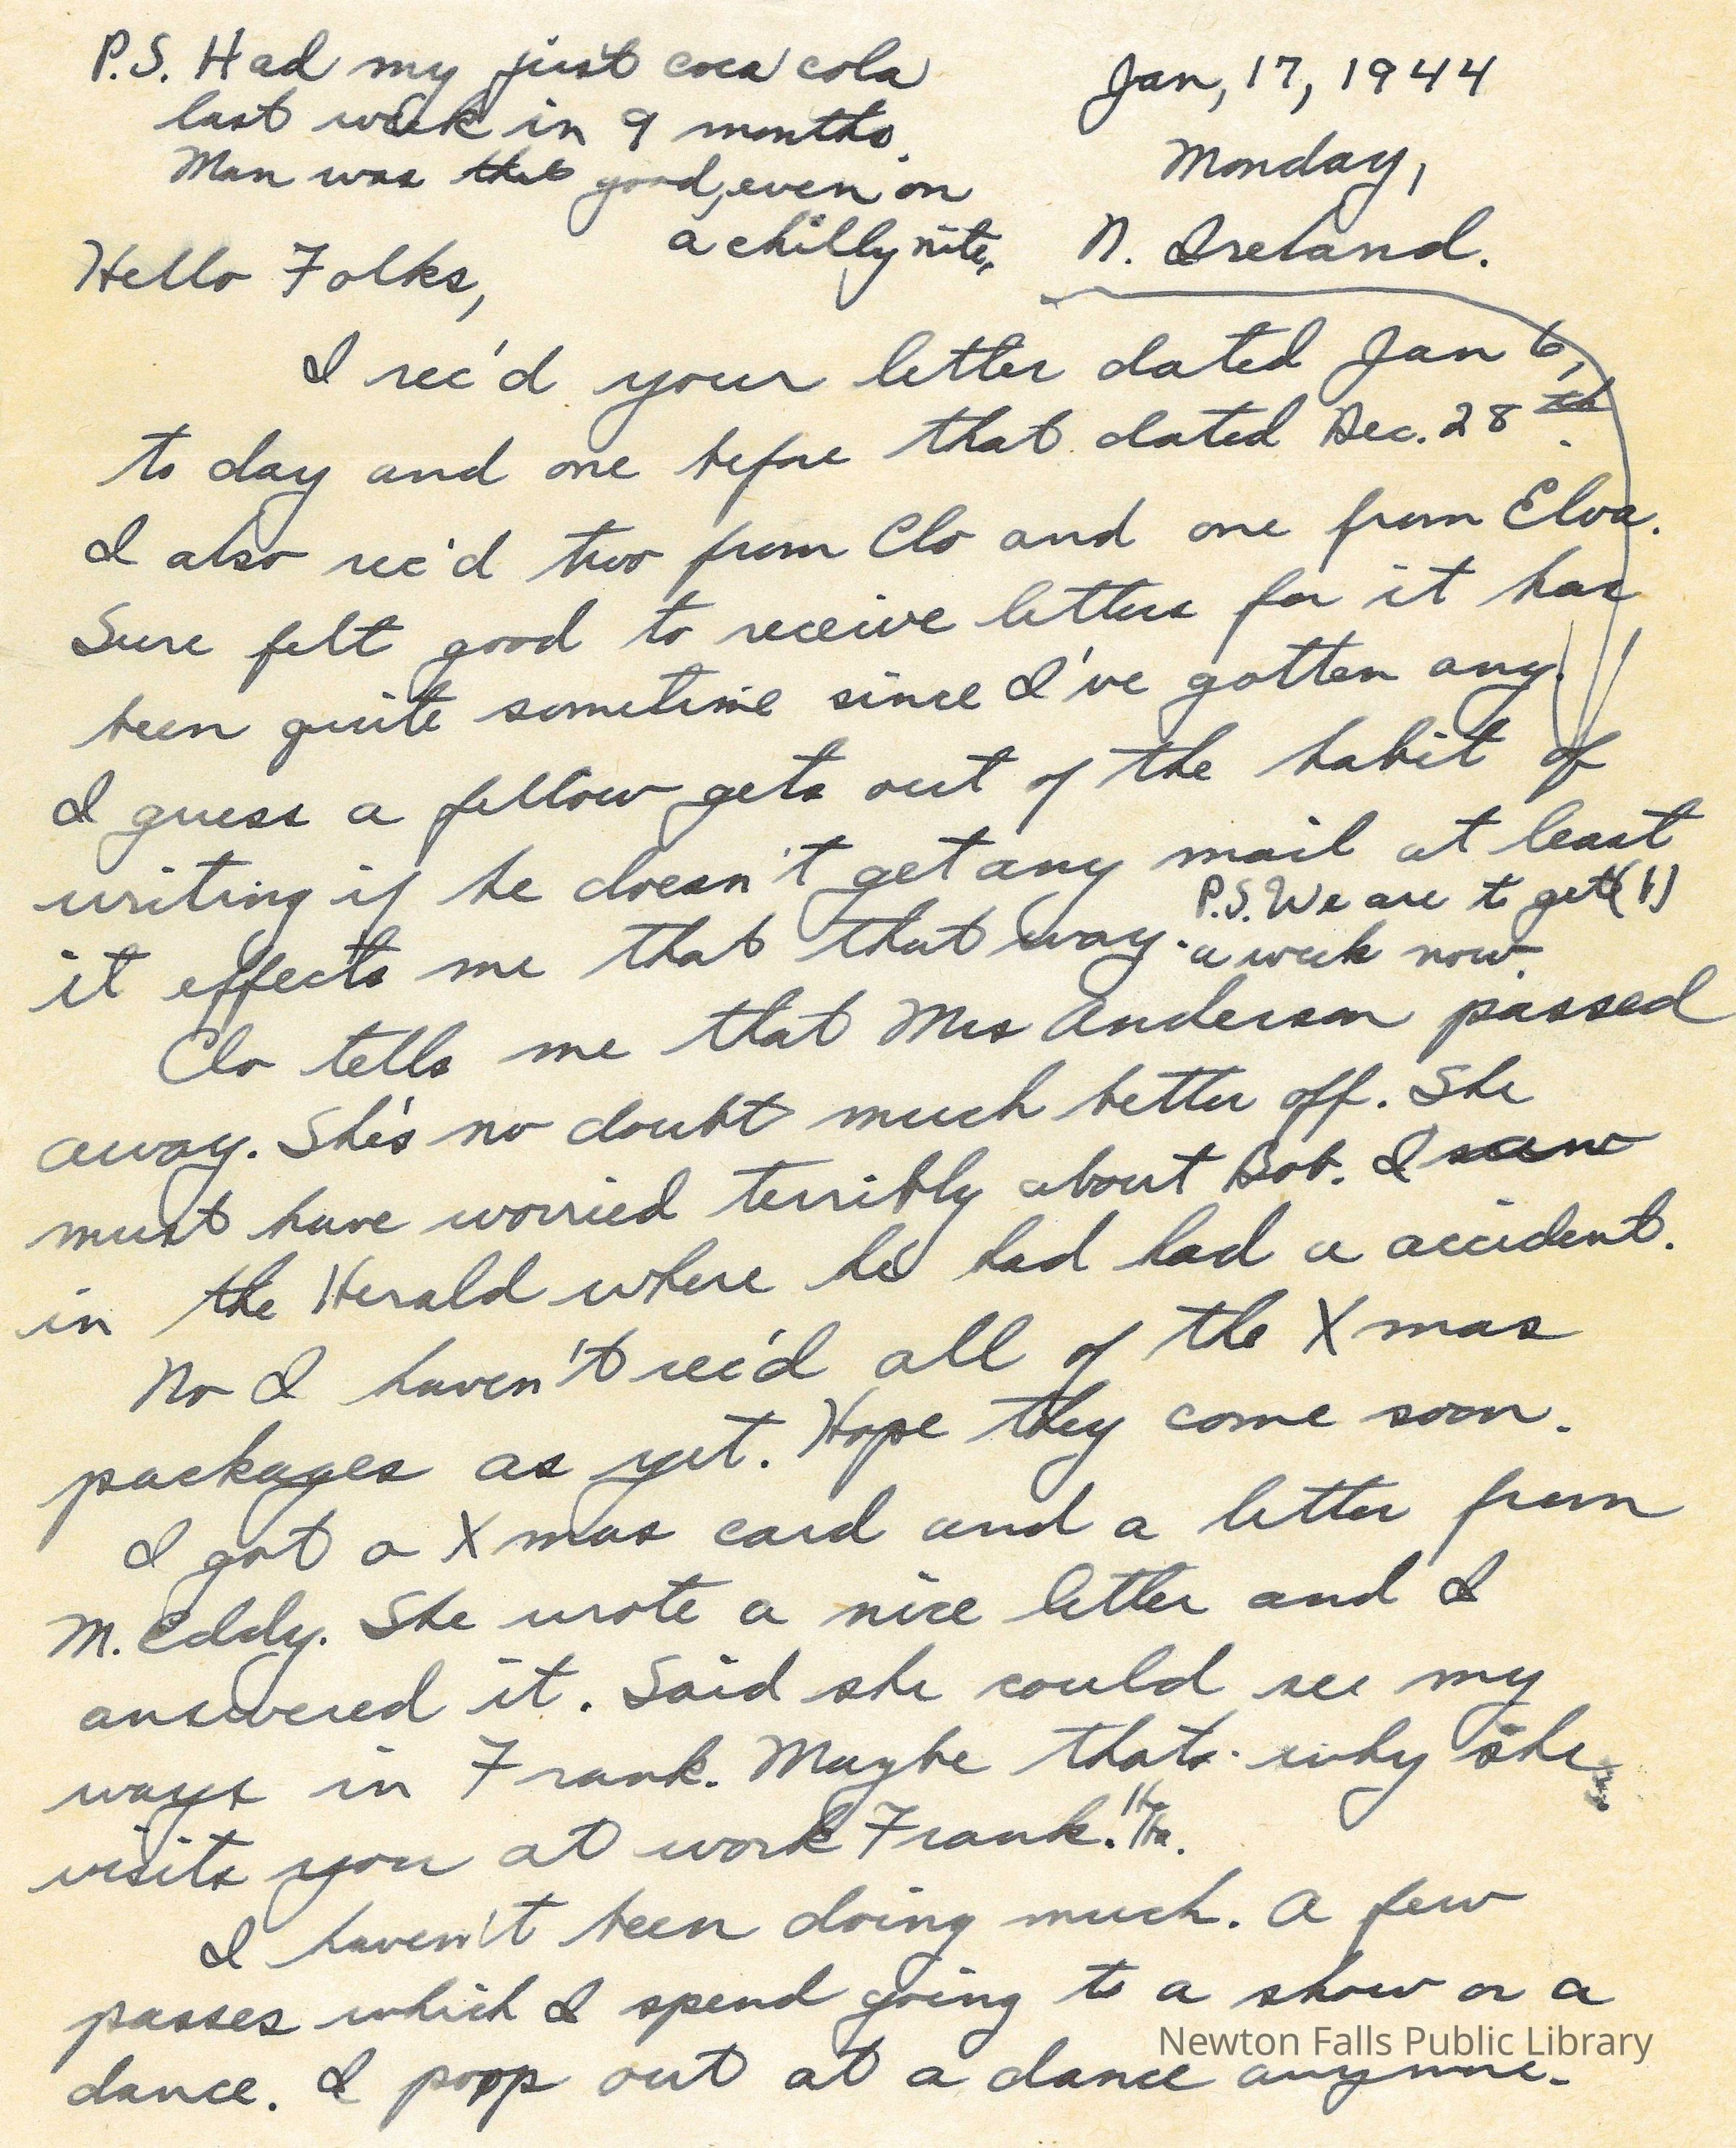 P.S. Had my just coca cola
last week in 9 months.
Man was that good, even on
a chilly nite.
Jan, 17, 1944
Monday,
N. Ireland.
Hello Folks,
I rec'd your letter dated Jan 6,
to day and one before that dated Dec. 28th.
I also rec'd two from Clo and one from Elva.
Sure felt good to receive letters for it has
been quite sometime since I've gotten any.
I guess a fellow gets out of the habit of
writing if he doesn't get any mail at least
it effects me that that way.
P.S. We are to get (1)
a week now.
Clo tells me that Mrs Anderson passed
away. She's no doubt much better off. She
must have worried terribly about Bob. I saw
in the Herald where he had had a accident.
No I haven't rec'd all of the Xmas
packages as yet. Hope they come soon.
I got a Xmas card and a letter from
M. Eddy. She wrote a nice letter and I
answered it. Said she could see my
ways in Frank. Maybe thats why she
visits you at work Frank. Ha Ha.
I haven't been doing much. A few
passes which I spend going to a show or a
dance. I poop out at a dance anymore.
Newton Falls Public Library